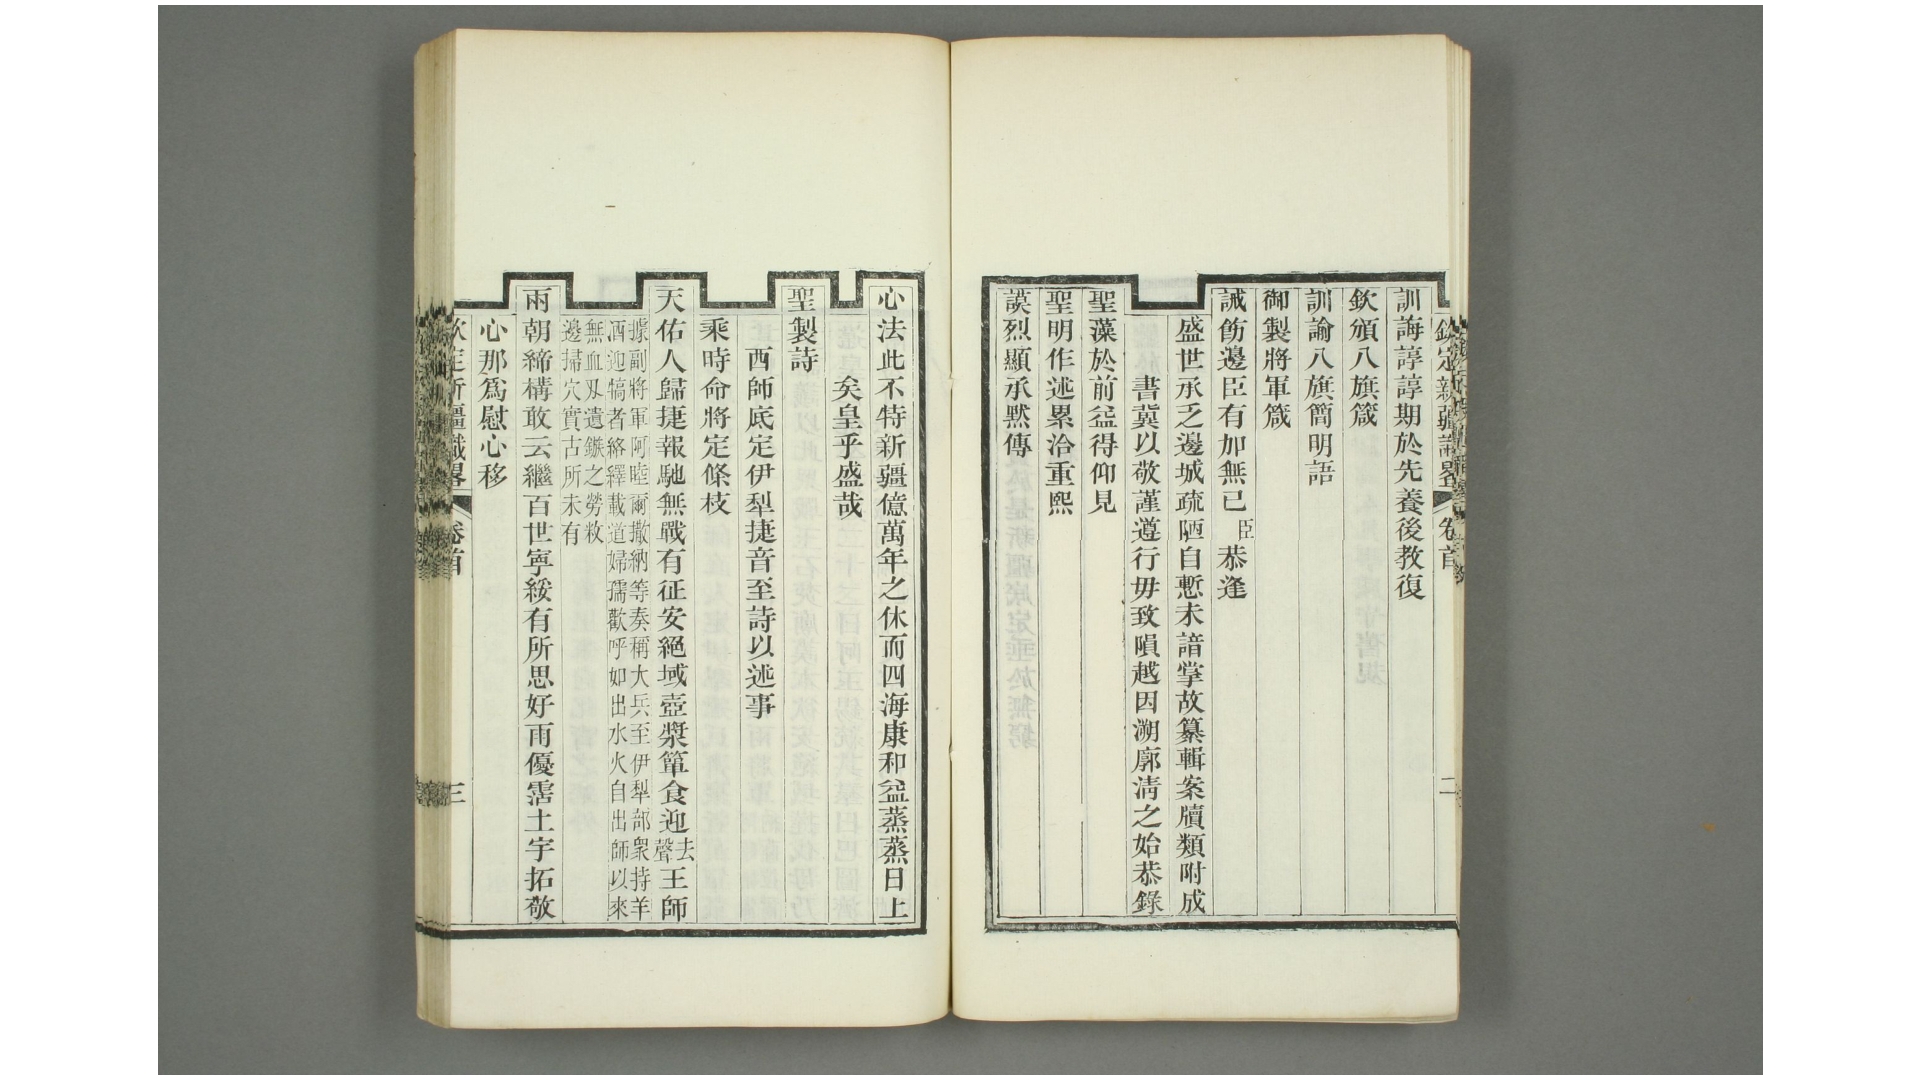 欽定新疆識畧 卷首 二
訓誨諄諄期於先養後教復
欽頒八旗箴
訓諭八旗簡明語
御製將軍箴
誡飭邊臣有加無已臣恭逢
盛世承乏邊城疏陋自慙未諳掌故纂輯案牘類附成
書冀以敬謹遵行毋致隕越因溯廓淸之始恭錄
聖藻於前益得仰見
聖明作述累洽重熙
謨烈顯承默傳
心法此不特新疆億萬年之休而四海康和益蒸蒸日上
矣皇乎盛哉
聖製詩
西師底定伊犁捷音至詩以述事
乘時命將定條枝
天佑人歸捷報馳無戰有征安絕域壺漿簞食迎去聲王師
據副將軍阿睦爾撒納等奏稱大兵至伊犁部衆持羊
酒迎犒者絡繹載道婦孺歡呼如出水火自出師以來
無血刄遺鏃之勞敉
邊掃穴實古所未有
兩朝締構敢云繼百世寧綏有所思好雨優霑土宇拓敬
心那爲慰心移
欽定新疆識畧 卷首 三